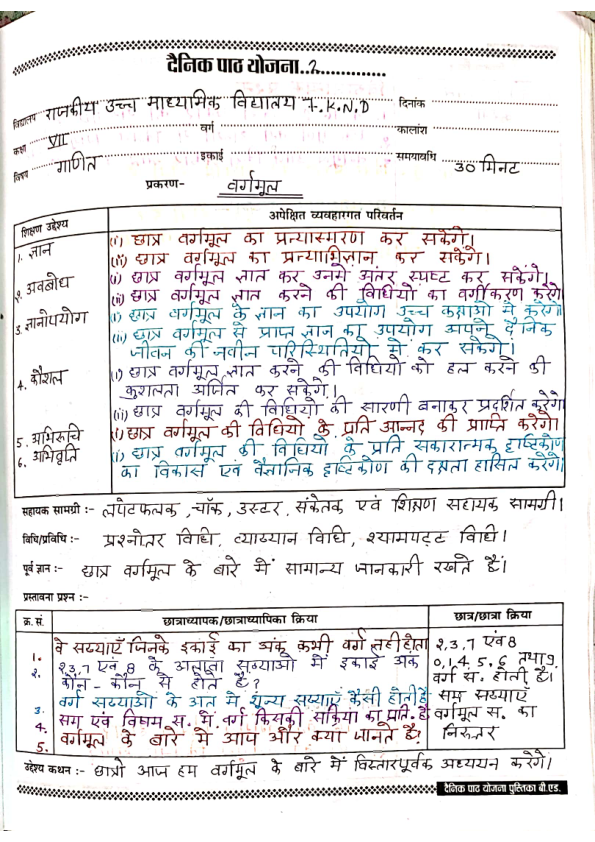 दैनिक पाठ योजना..2..............
विद्यालय राजकीय उच्च माध्यमिक विद्यालय F.K.N.D दिनांक
कक्षा VII वर्ग कालांश
विषय गणित इकाई समयावधि 30 मिनट
प्रकरण- वर्गमूल
शिक्षण उद्देश्य अपेक्षित व्यवहारगत परिवर्तन
1. ज्ञान (i) छात्र वर्गमूल का प्रत्यास्मरण कर सकेंगे।
(ii) छात्र वर्गमूल का प्रत्याभिज्ञान कर सकेंगे।
2. अवबोध (i) छात्र वर्गमूल ज्ञात कर उनमें अंतर स्पष्ट कर सकेंगे।
(ii) छात्र वर्गमूल ज्ञात करने की विधियों का वर्गीकरण करेंगे
3. ज्ञानोपयोग (i) छात्र वर्गमूल के ज्ञान का उपयोग उच्च कक्षाओं में करेंगे।
(ii) छात्र वर्गमूल से प्राप्त ज्ञान का उपयोग अपने दैनिक
जीवन की नवीन परिस्थितियो में कर सकेंगे।
4. कौशल (i) छात्र वर्गमूल ज्ञात करने की विधियों को हल करने की
कुशलता अर्जित कर सकेंगे।
(ii) छात्र वर्गमूल की विधियो की सारणी बनाकर प्रदर्शित करेंगे।
5. अभिरूचि (i) छात्र वर्गमूल की विधियों के प्रति आन्नद की प्राप्ति करेंगे।
6. अभिवृति (ii) छात्र वर्गमूल की विधियो के प्रति सकारात्मक दृष्टिकोण
का विकास एवं वैज्ञानिक दृष्टिकोण की दक्षता हासिल करेंगे।
सहायक सामग्री :- लपेटफलक, चॉक, डस्टर, संकेतक एवं शिक्षण सहायक सामग्री।
विधि/प्रविधि :- प्रश्नोतर विधि, व्याख्यान विधि, श्यामपट्ट विधि।
पूर्व ज्ञान :- छात्र वर्गमूल के बारे में सामान्य जानकारी रखते हैं।
प्रस्तावना प्रश्न :-
क्र. सं. छात्राध्यापक/छात्राध्यापिका क्रिया छात्र/छात्रा क्रिया
1. वे सख्याएँ जिनके इकाई का अंक कभी वर्ग नहीं होता 2,3,7 एवं 8
2. 2,3,7 एवं 8 के अलावा सख्याओ में इकाई अंक 0,1,4,5,6 तथा 9
कौन-कौन से होते है? वर्ग सं. होती है।
3. वर्ग सख्याओ के अंत मे शून्य सख्याएँ कैसी होती हैं सम सख्याएँ
4. सम एवं विषम सं. में वर्ग किसकी संक्रिया का प्रति. है वर्गमूल स. का
5. वर्गमूल के बारे में आप और क्या जानते है? निरूतर
उद्देश्य कथन :- छात्रो आज हम वर्गमूल के बारे में विस्तारपूर्वक अध्ययन करेंगे।
दैनिक पाठ योजना पुस्तिका बी.एड.